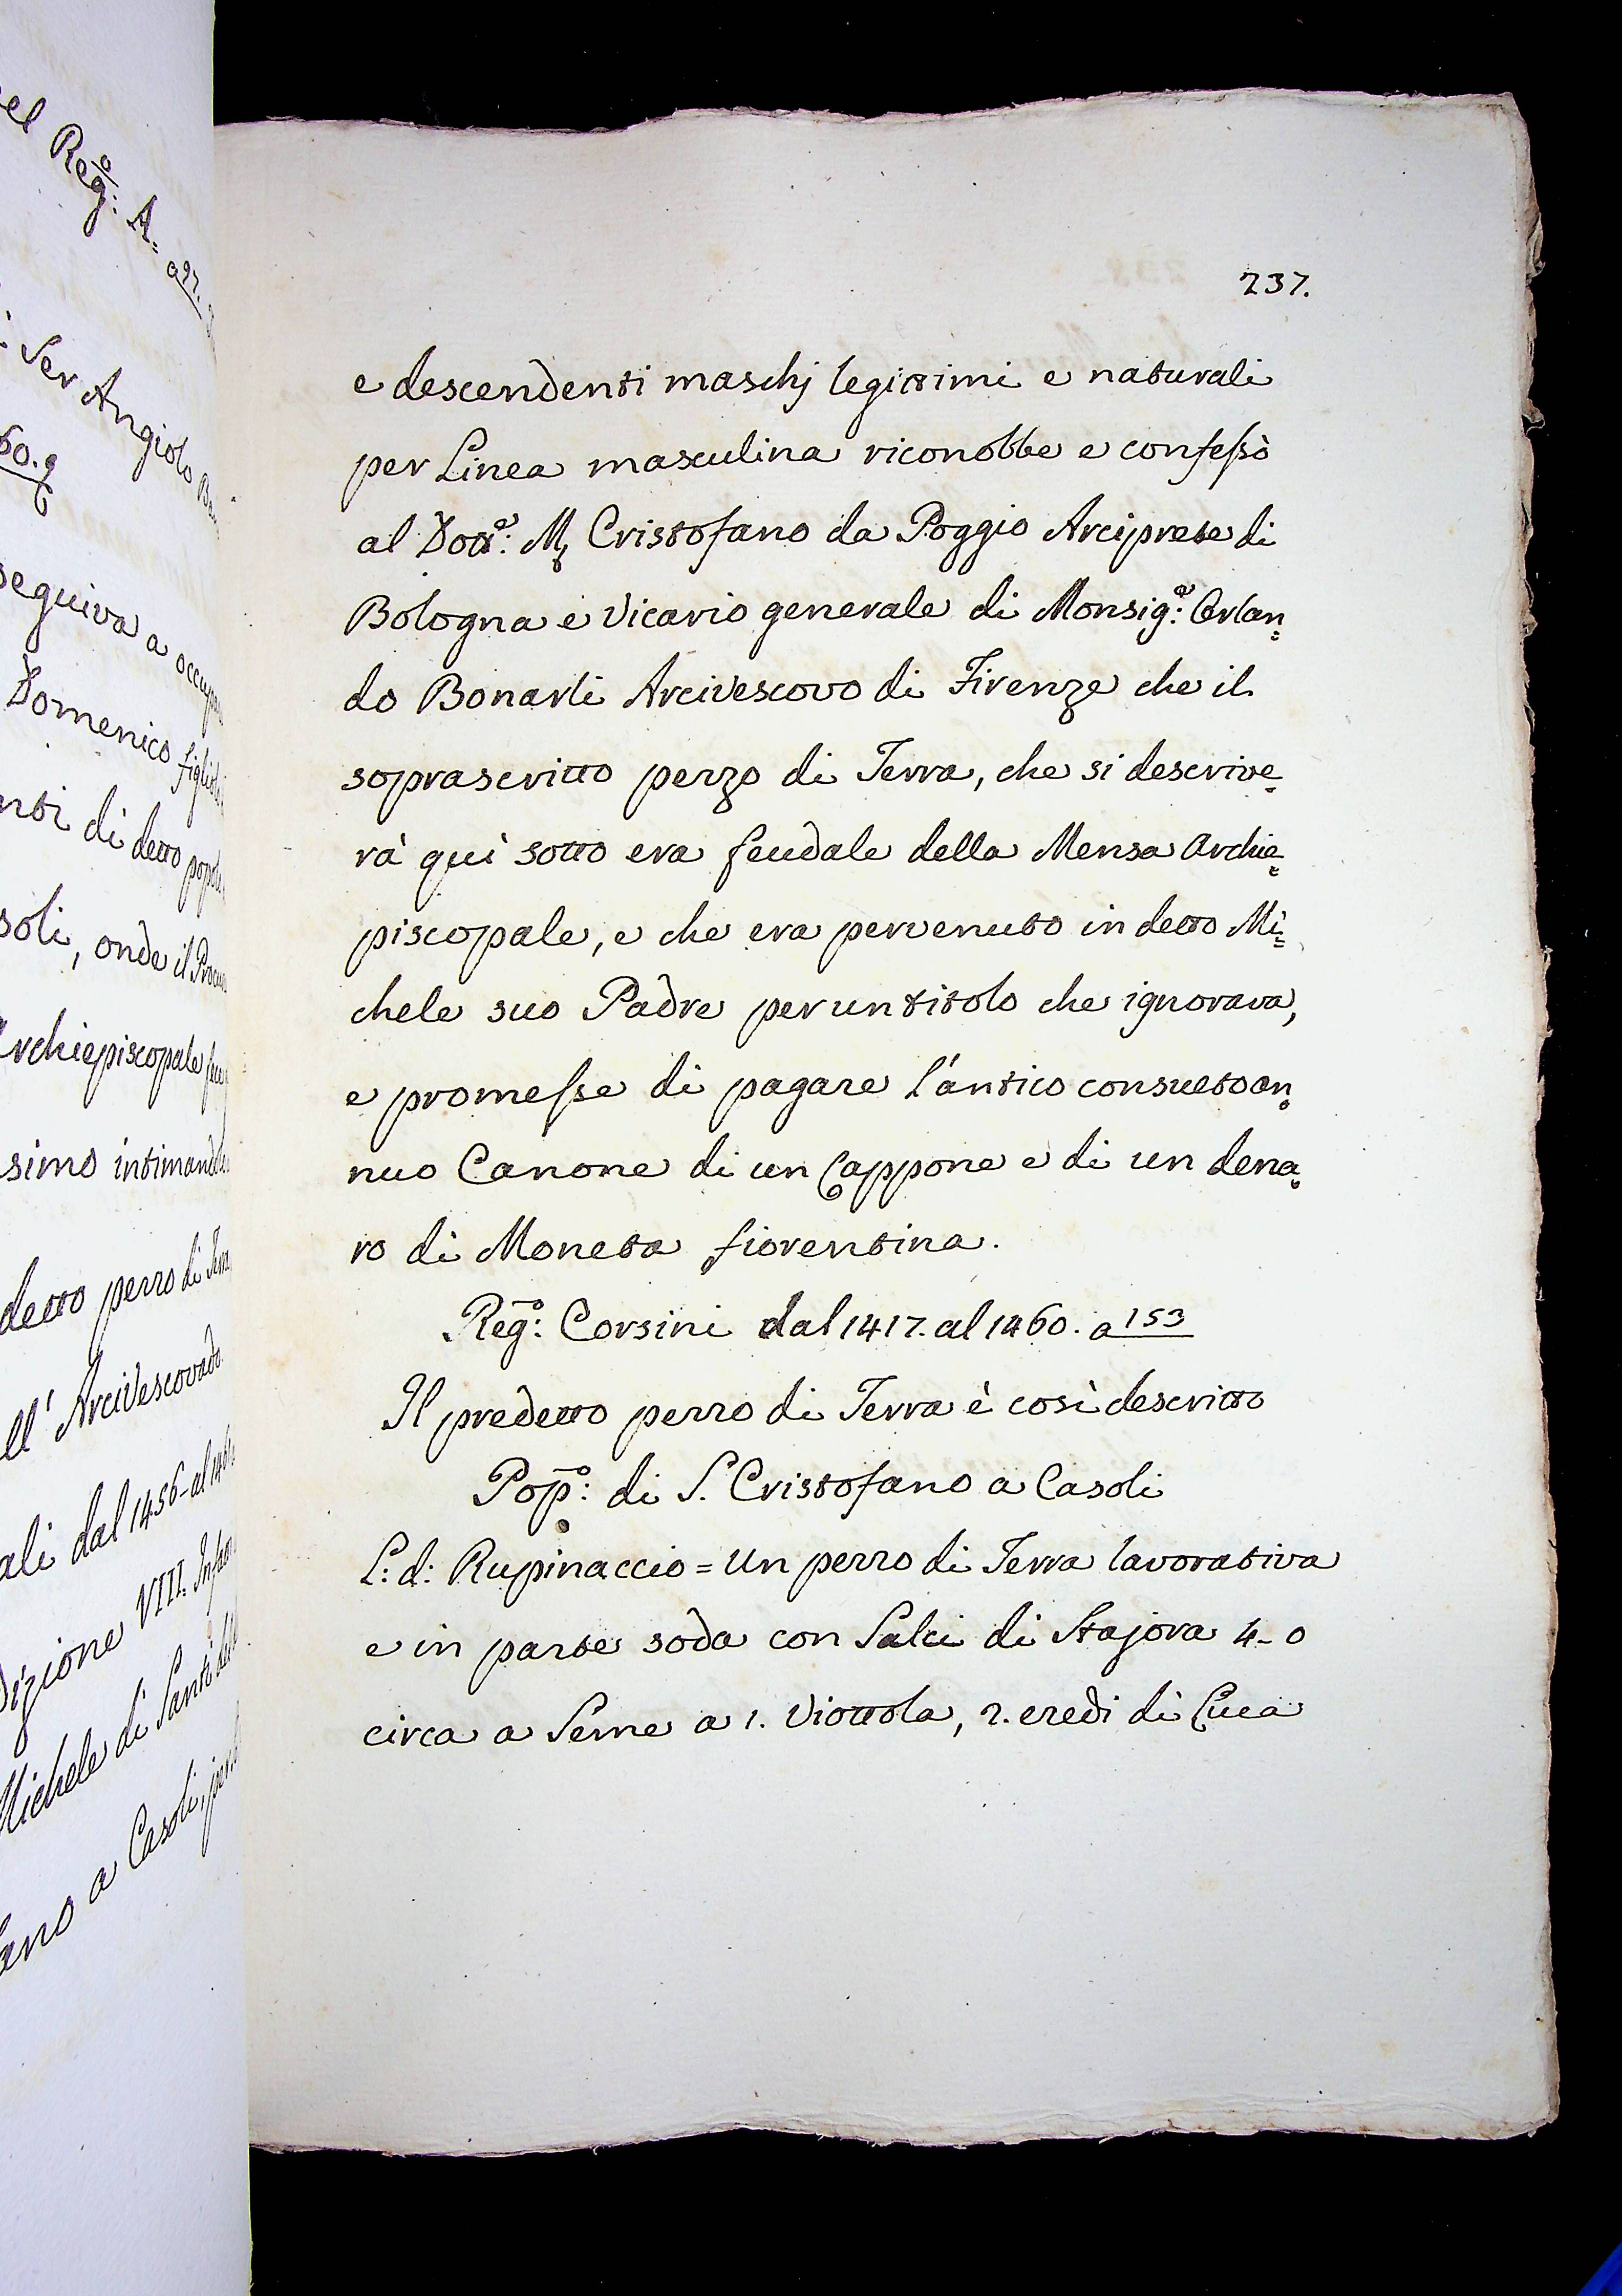 237.
e descendenti maschj legittimi e naturali
per Linea masculina riconobbe e confessò
al Dott.e: M. Cristofano da Poggio Arciprete di
Bologna e Vicario generale di Monsig.e: Orlan=
do Bonarli Arcivescovo di Firenze che il
soprascritto pezzo di Terra, che si descrive=
rà qui sotto era feudale della Mensa Archie=
piscopale, e che era pervenuto in detto Mi=
chele suo Padre per un titolo che ignorava,
e promesse di pagare l'antico consueto an=
nuo Canone di un Cappone e di un dena=
ro di Moneta fiorentina.
Reg.o: Corsini dal 1417. al 1460. a 153
Il predetto pezzo di Terra è così descritto
Pop.o: di S. Cristofano a Casoli
L: d: Rupinaccio = Un pezzo di Terra lavorativa
e in parte soda con Salci di Stajora 4-0
circa a Seme a 1. Viottola, 2. eredi di Luca
el Reg.o: A=
Ser Angiolo
60.
seguiva a
Domenico figlioli
nti di detto
soli, onde il
Archiepiscopale
simo
detto pezzo di
ell' Arcivescovado
ali dal 1456-al
dizione VIII.
Michele di Santi del
fano a Casoli,